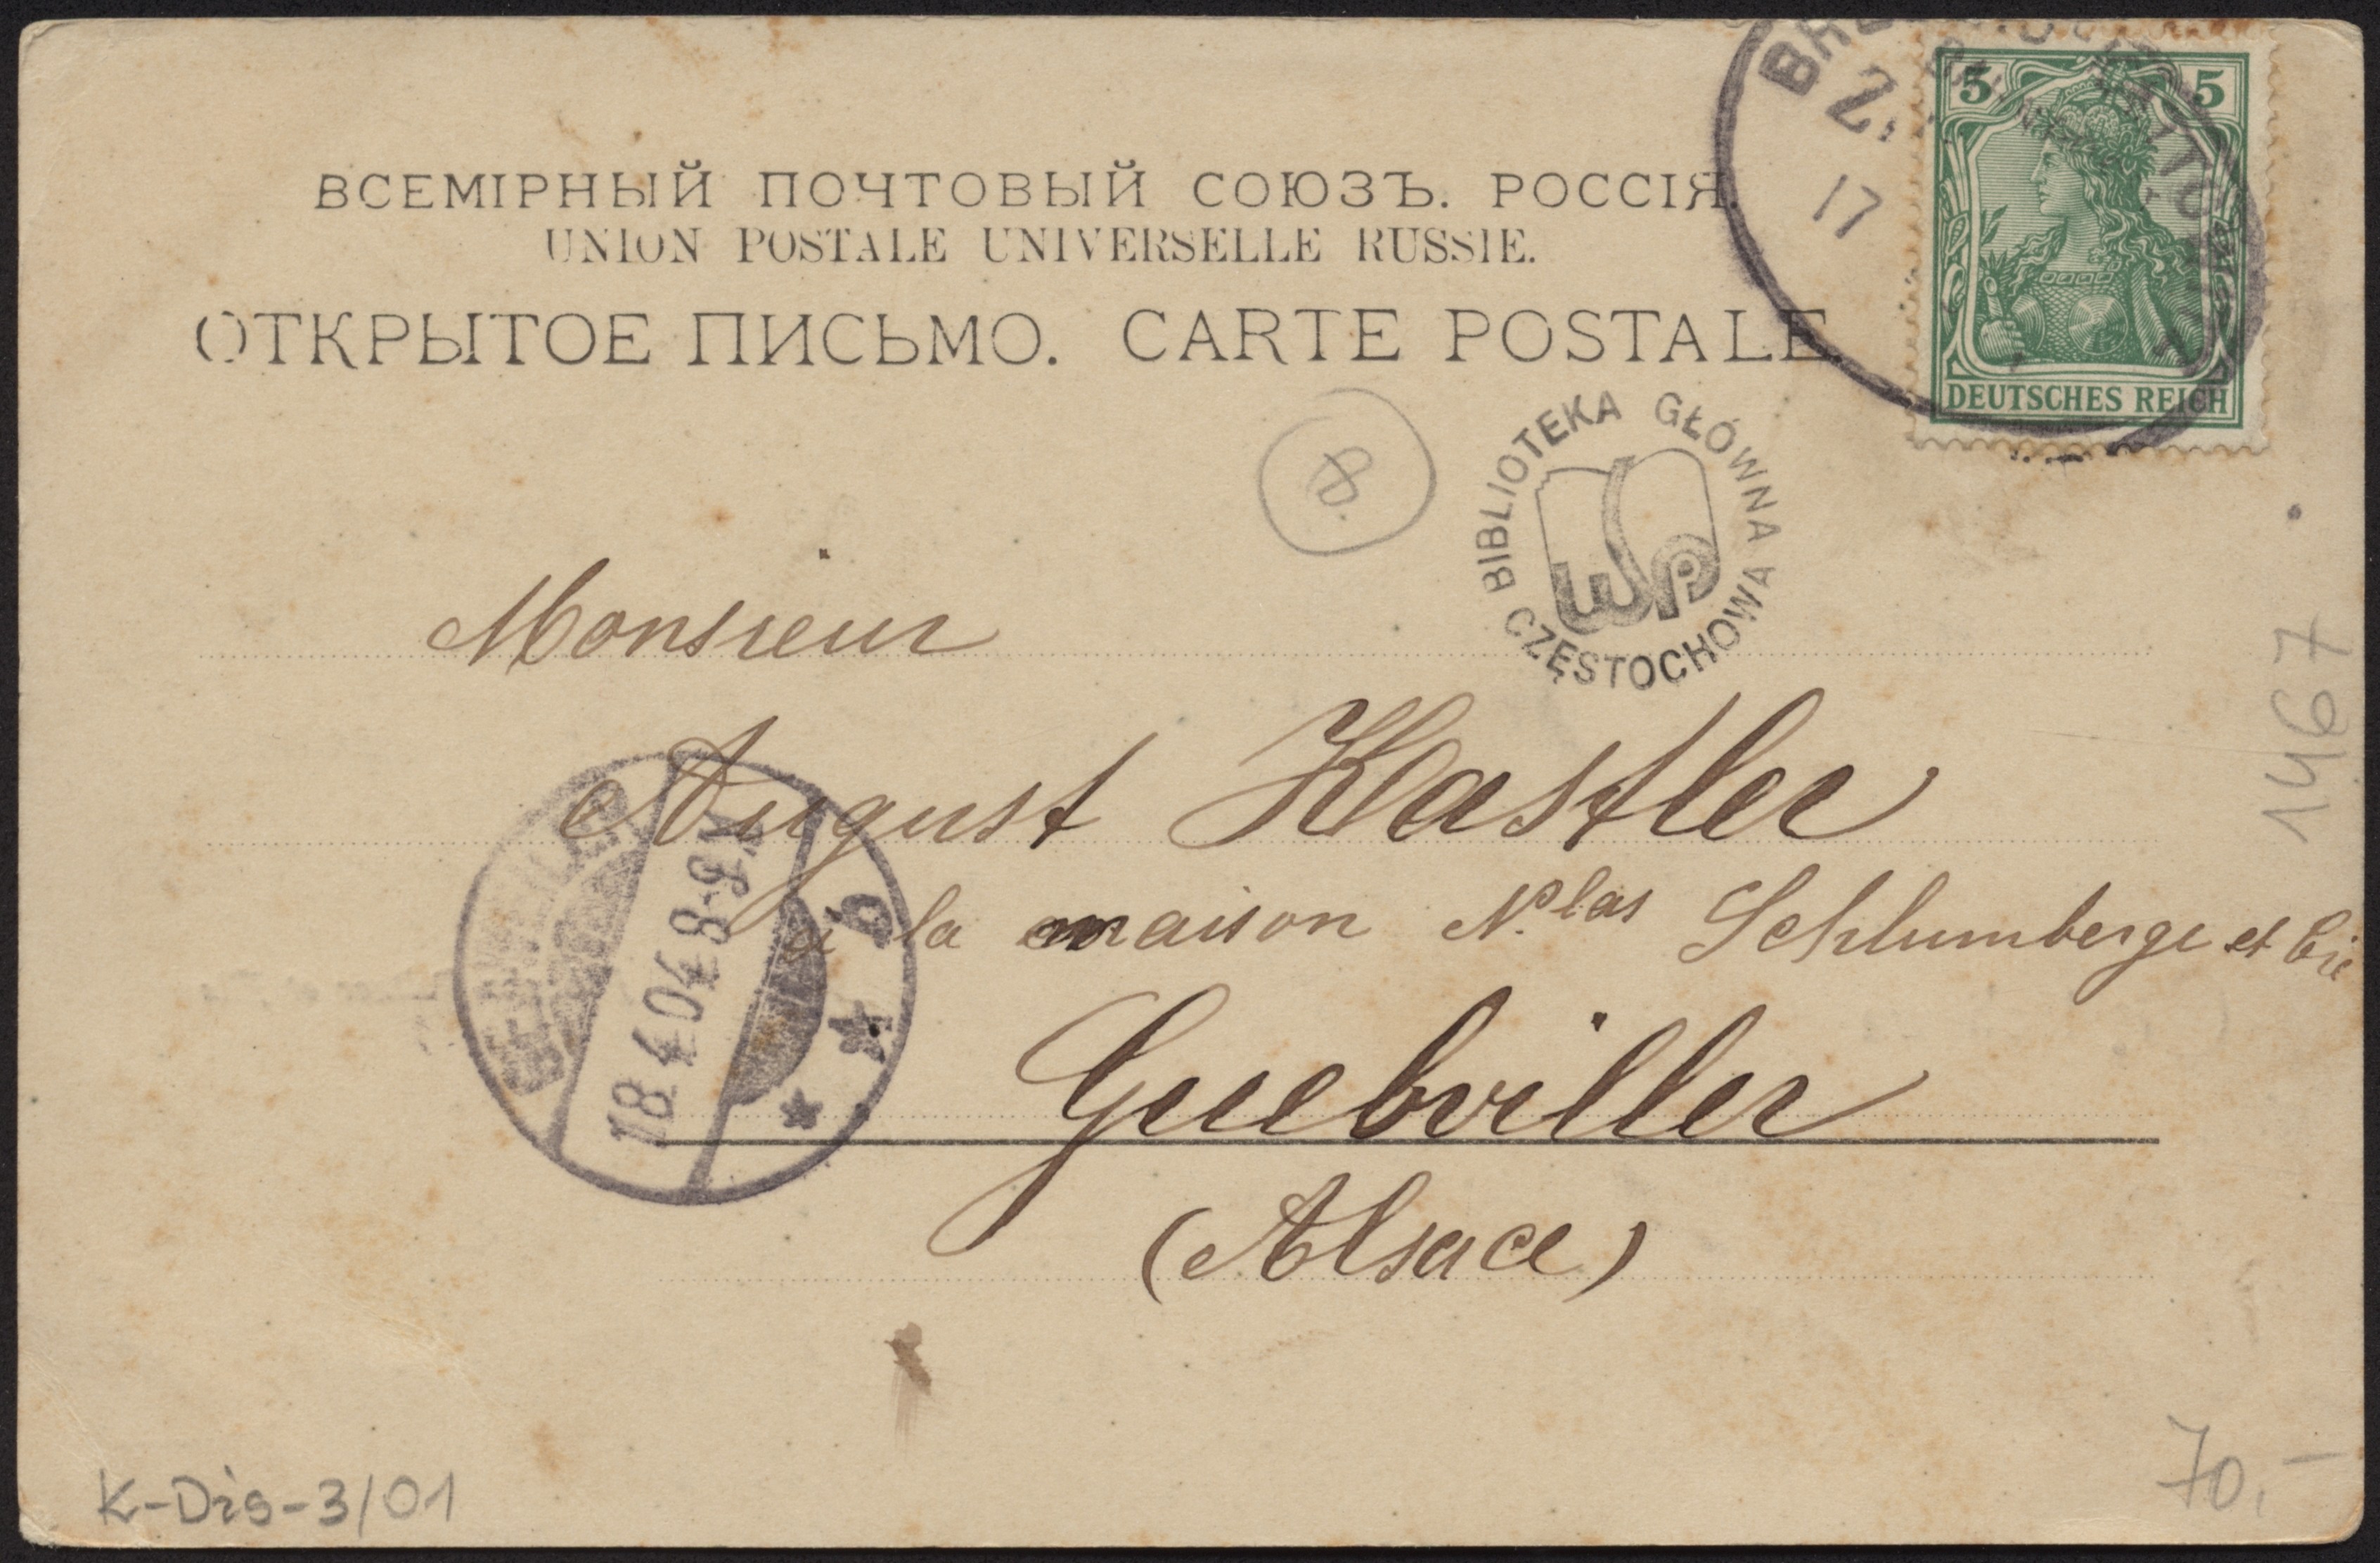 ВСЕМІРНЫЙ ПОЧТОВЫЙ СОЮЗЪ. РОССІЯ.
UNION POSTALE UNIVERSELLE RUSSIE.
ОТКРЫТОЕ ПИСЬМО. CARTE POSTALE.
5 5
DEUTSCHES REICH
17
8.
BIBLIOTEKA GŁÓWNA
WSP
CZĘSTOCHOWA
1467
Monsieur
August Kastler
à la maison N.las Schlumberge et Cie
Guebviller
(Alsace)
GEBWEILER
18.4.04.8-9V.
* * b
K-Dis-3/01
70,-